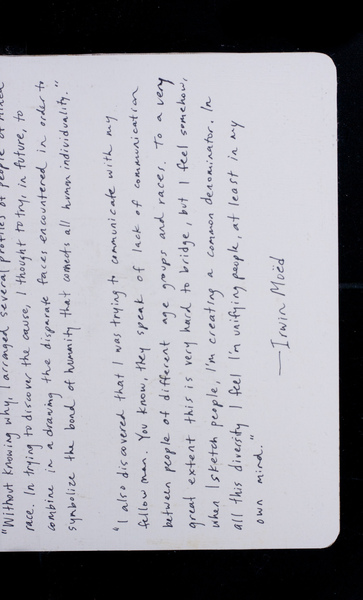 "Without knowing why, I arranged several profiles of people of mixed
race. In trying to discover the cause, I thought to try, in future, to
combine in a drawing the disparate faces encountered in order to
symbolize the bond of humanity that connects all human individuality."
"I also discovered that I was trying to communicate with my
fellow man. You know, they speak of lack of communication
between people of different age groups and races. To a very
great extent this is very hard to bridge, but I feel somehow,
when I sketch people, I'm creating a common denominator. In
all this diversity I feel I'm unifying people, at least in my
own mind."
—Irwin Moëd